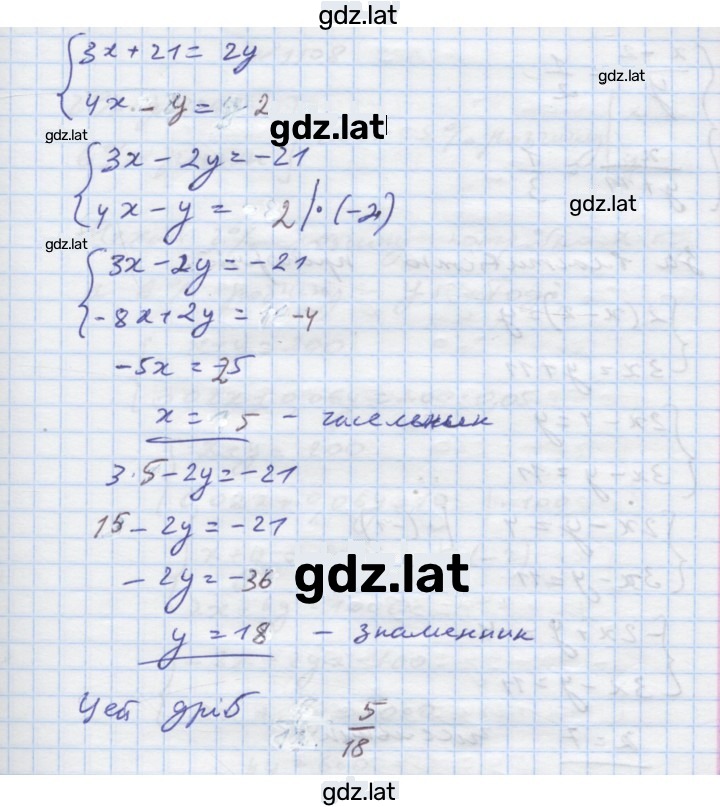 gdz.lat
3x + 21 = 2y
gdz.lat
4x - y = 2
gdz.lat
gdz.lat
3x - 2y = -21
4x - y = 2 | · (-2)
gdz.lat
gdz.lat
3x - 2y = -21
-8x + 2y = -4
-5x = 25
x = 5 - чисельник
3 · 5 - 2y = -21
15 - 2y = -21
- 2y = -36
gdz.lat
y = 18 - знаменник
Цей дріб 5/18
gdz.lat